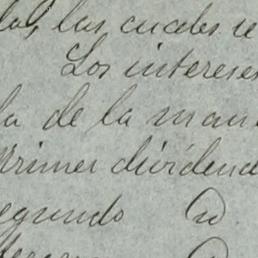 las, las cuales se
Los intereses
la de la man
Primer dividend
egundo Id.